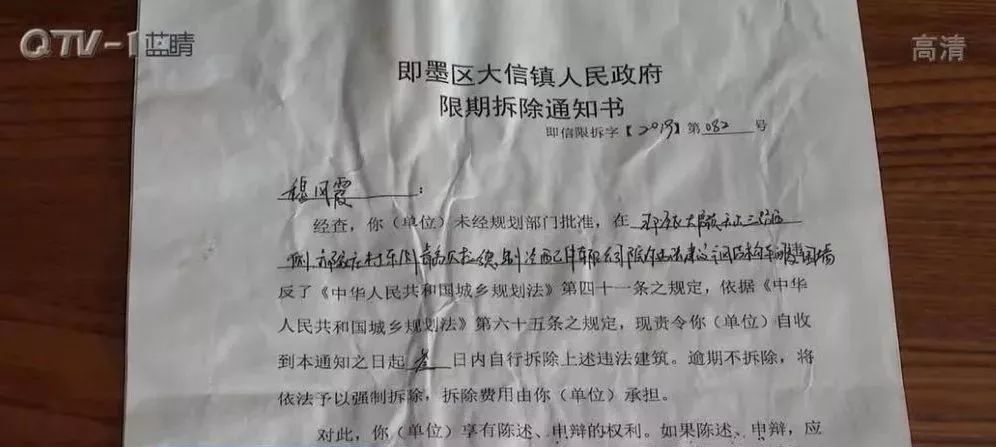 QTV-1 蓝睛
高清
即墨区大信镇人民政府
限期拆除通知书
即信限拆字【2019】第082号
穆风霞:
经查，你（单位）未经规划部门批准，在
反了《中华人民共和国城乡规划法》第四十一条之规定，依据《中华
人民共和国城乡规划法》第六十五条之规定，现责令你（单位）自收
到本通知之日起 叁 日内自行拆除上述违法建筑。逾期不拆除，将
依法予以强制拆除，拆除费用由你（单位）承担。
对此，你（单位）享有陈述、申辩的权利。如果陈述、申辩，应